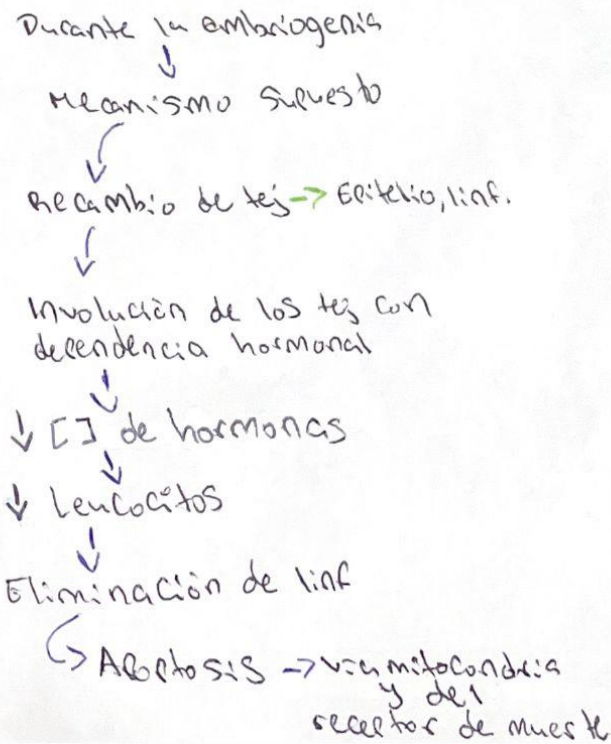 Durante la embriogenia
↓
Mecanismo supuesto
↓
Recambio de tej → Epitelio, linf.
↓
Involución de los tej con
dependencia hormonal
↓
↓ [] de hormonas
↓
↓ Leucocitos
↓
Eliminación de linf
↳ Apoptosis → vía mitocondria
y del
receptor de muerte